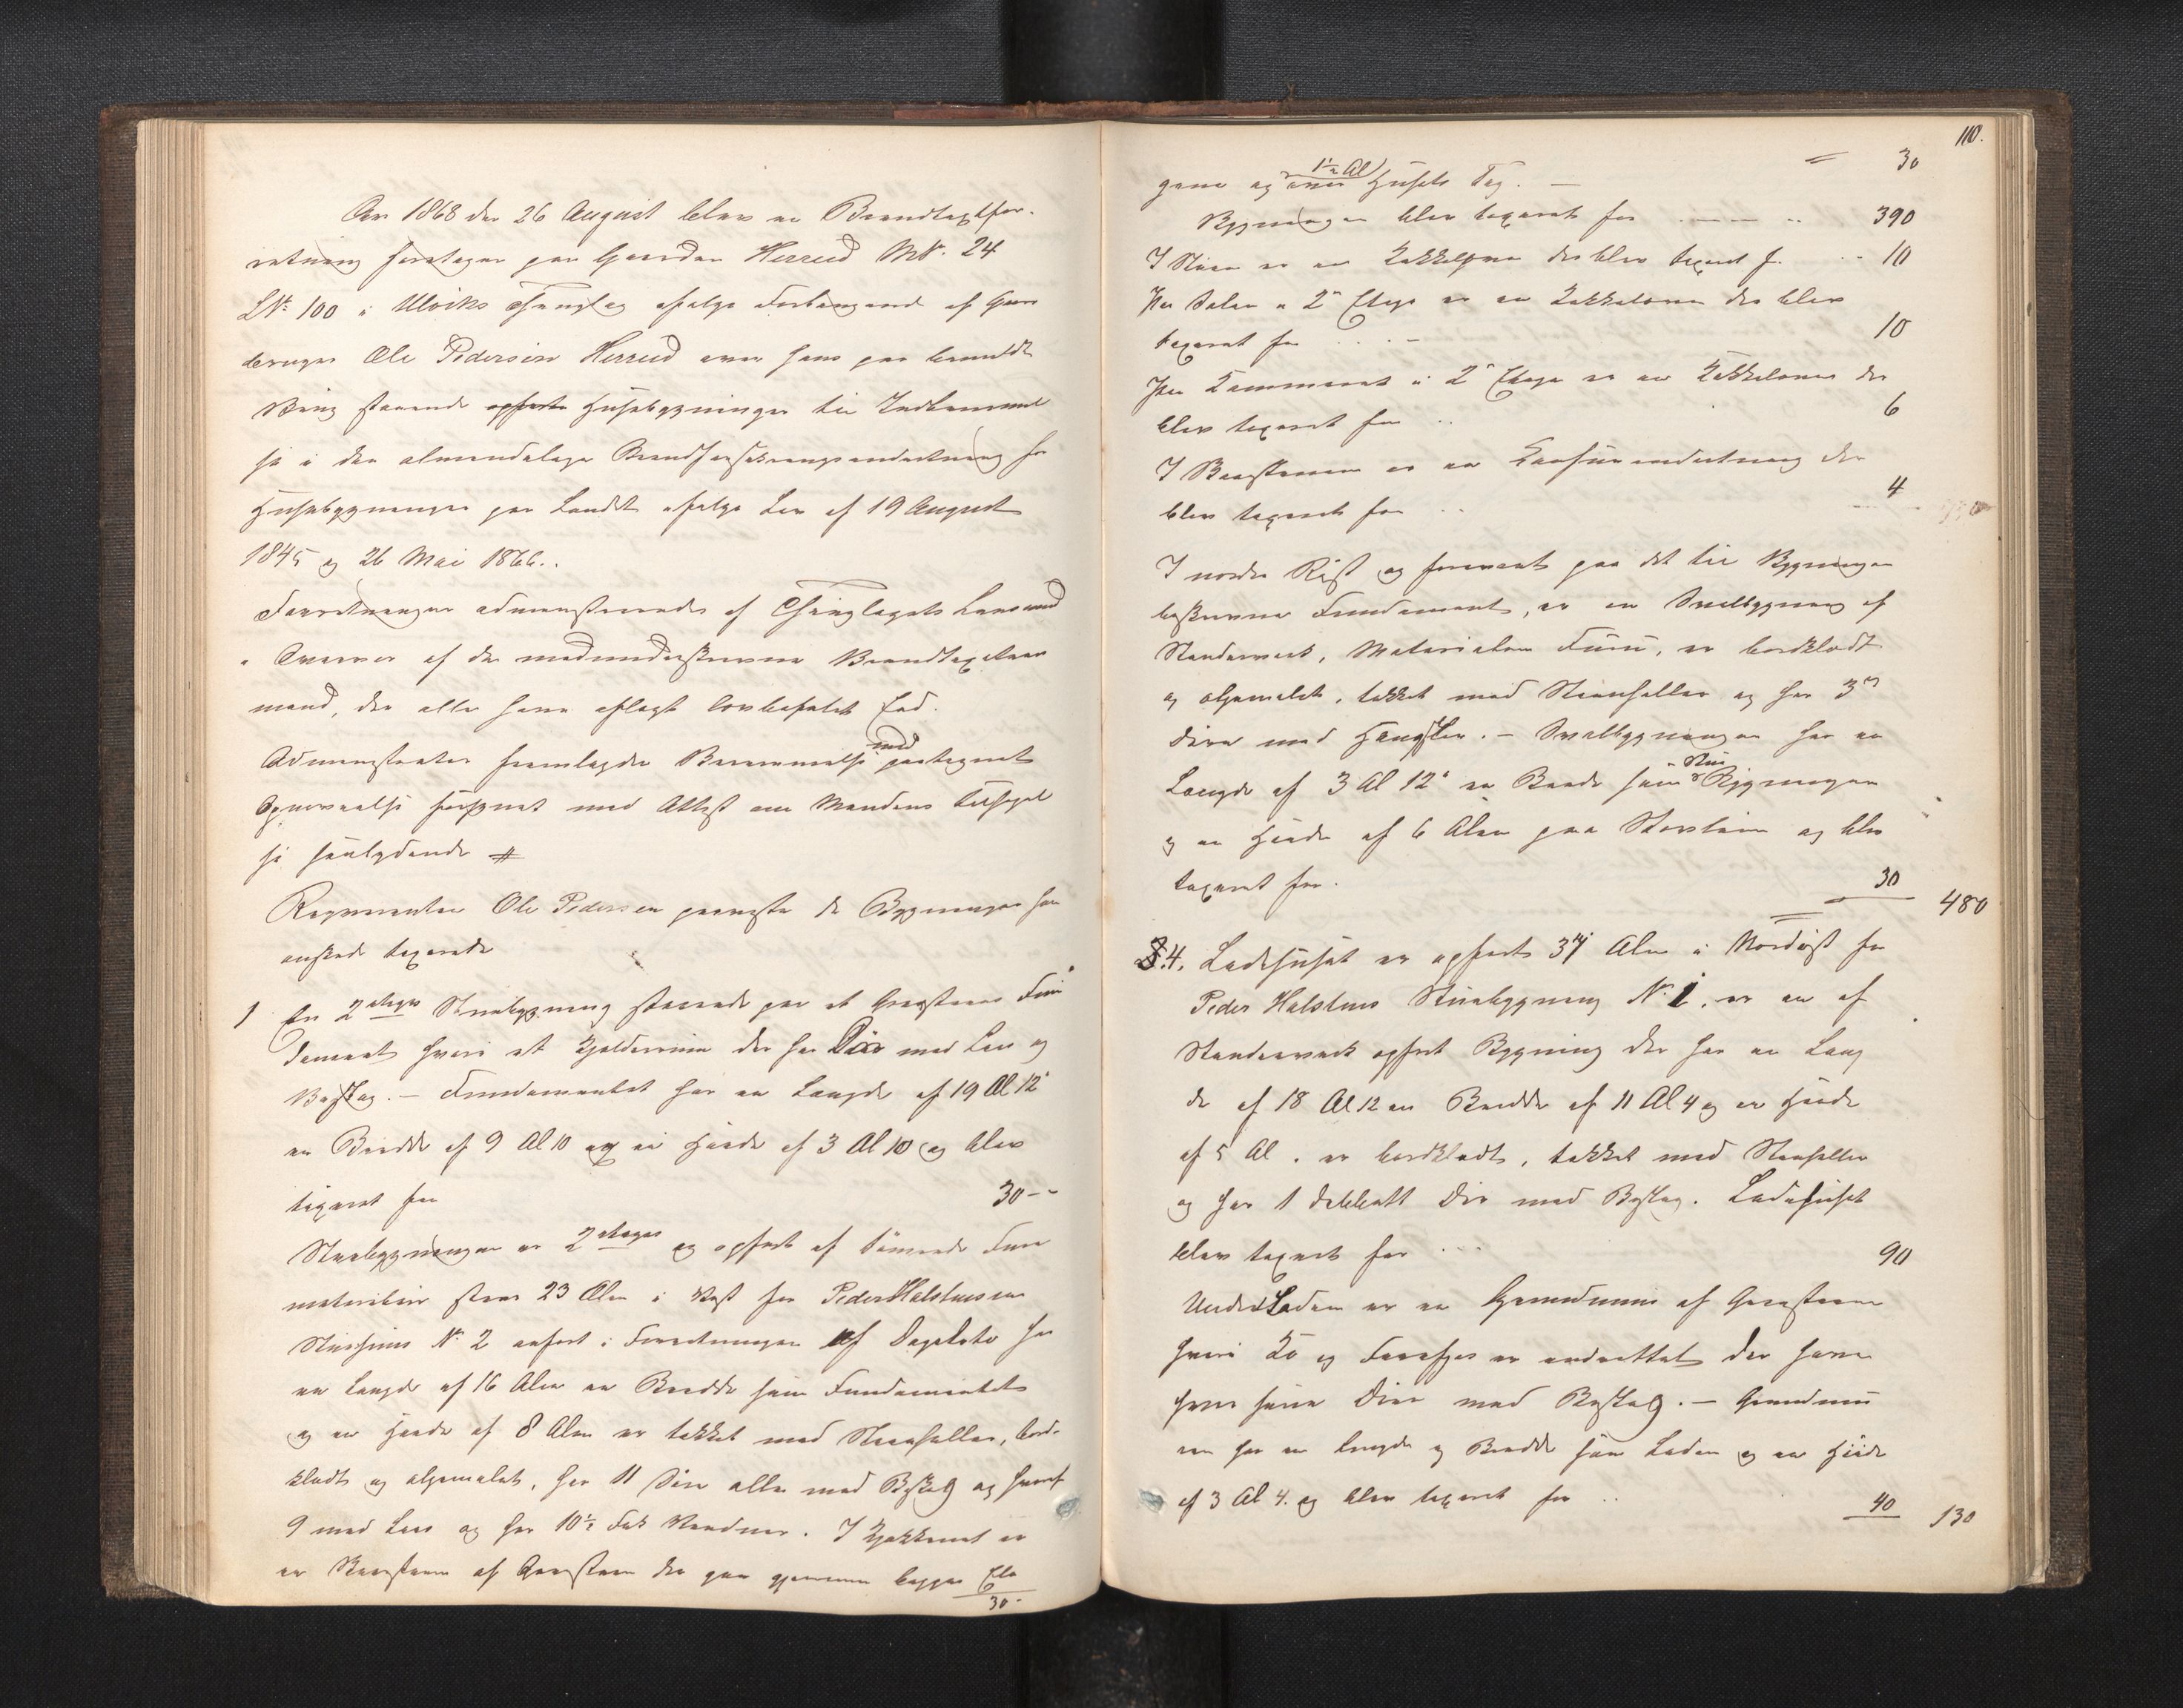 Aar 1868 den 26 August blev en Brandtaxtfor-
retning foretagen paa Gaarden Herreid MN. 24
LN: 100 i Ulviks Thinglag ifølge Forlangende af Gaard
bruger Ole Pedersen Herreid over hans paa bemeldte
Brug staaende opførte Husebygninger til Indlemmel
se i den almindelige Brandforsikringsindretning for
Husebygninger paa Landet ifølge Lov af 19 August
1845 og 26 Mai 1866..
Forretningen administreredes af Thinglagets Lensmand
i Overvær af de medunderskrevne Brandtaxtions
mænd, der alle have aflagt lovbefalet Eed.
Administrator fremlagde Berammelse med paategnet
forsynet med Attest om Mændenes Tilsigel
se saalydende #
Reqvirenten Ole Pedersen paaviste de Bygninger han
ønskede taxerede
1 En 2 etages Stuebygning staaende paa et Graasteens Fun
dament hvori et Kjelderrum der har Dør med Laas og
Beslag. – Fundamentet har en Længde af 19 Al 12"
en Bredde af 9 Al 10 og en Høide af 3 Al 10 og blev
taxeret for 30 --
Stuebygningen er 2 etages og opført af tømrede Furu
materialier staar 23 Alen i Vest for Peder Halstensens
Stuehuus N: 2 anført i Forretningen af Dags Dato har
en Længde af 16 Alen en Bredde som Fundamentet
og en Høide af 8 Alen er tækket med Steenheller, bord-
klædt og oljemalet, har 11 Døre alle med Beslag og hvoraf
9 med Laas og har 10½ Fak Vinduer. I Kjøkkenet er
en Skorsteen af Graasteen der gaar gjennem begge Eta
30-
110.
gerne og 1½ Al over Husets Tag. – = 30
Bygningen blev taxeret for 390
I Stuen er en Kakkelovn der blev taxeret f. 10
Paa Salen i 2den Etage er en Kakkelovn der blev
taxeret for 10
Paa Kammeret i 2den Etage er en Kakkelovn der
blev taxeret for 6
I er en indretning der
blev taxeret for 4
I nordre Røst og forresten paa det til Bygningen
beskrevne Fundament, er en Svalbygning af
Standerværk, Materialier Furu, er bordklædt
og oljemalet, tækket med Steenheller og har 3de
Døre med Hængsler. – Svalbygningen har en
Længde af 3 Al 12" en Bredde som Stuebygningen
og en Høide af 6 Alen paa Stavlinie og blev
taxeret for. 30 480
§.4. Ladehuset er opført 34 Alen i Nordøst for
Peder Halstens Stuebygning N: 1, er en af
Standerværk opført Bygning der har en Læng
de af 18 Al 12 en Bredde af 11 Al 4 og en Høide
af 5 Al. er bordklædt, tækket med Steenheller
og har 1 dobbelt Dør med Beslag. Ladehuset
blev taxeret for 90
Under Laden er en Grundmuur af Graasteen
hvori Ko og Faarefjøs er indrettet der have
hver sin Dør med Beslag. – Grundmu
ren har en Længde og Bredde som Laden og en Høide
af 3 Al 4. og blev taxeret for 40 130